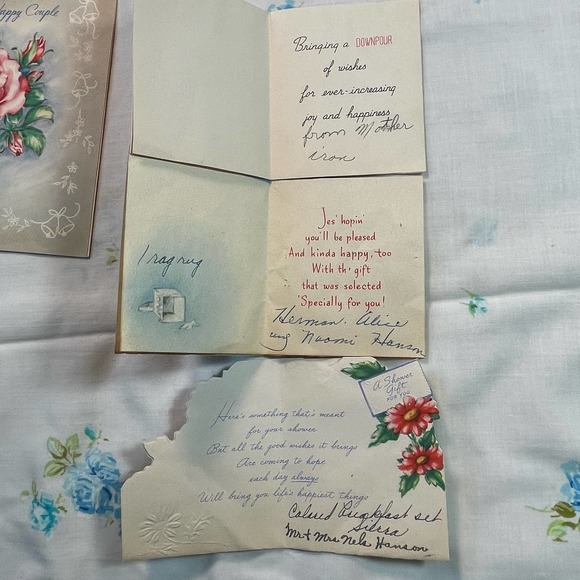 Happy Couple
Bringing a DOWNPOUR
of wishes
for ever-increasing
joy and happiness
from Mother
iron
1 rag rug
Jes' hopin'
you'll be pleased
And kinda happy, too
With th' gift
that was selected
'Specially for you!
Herman. Alice
Naomi Hanson
A Shower
Gift
FOR YOU
Here's something that's meant
for your shower
But all the good wishes it brings
Are coming to hope
each day always
Will bring you life's happiest things
Colored Breakfast set
Mr & Mrs Nels Hanson